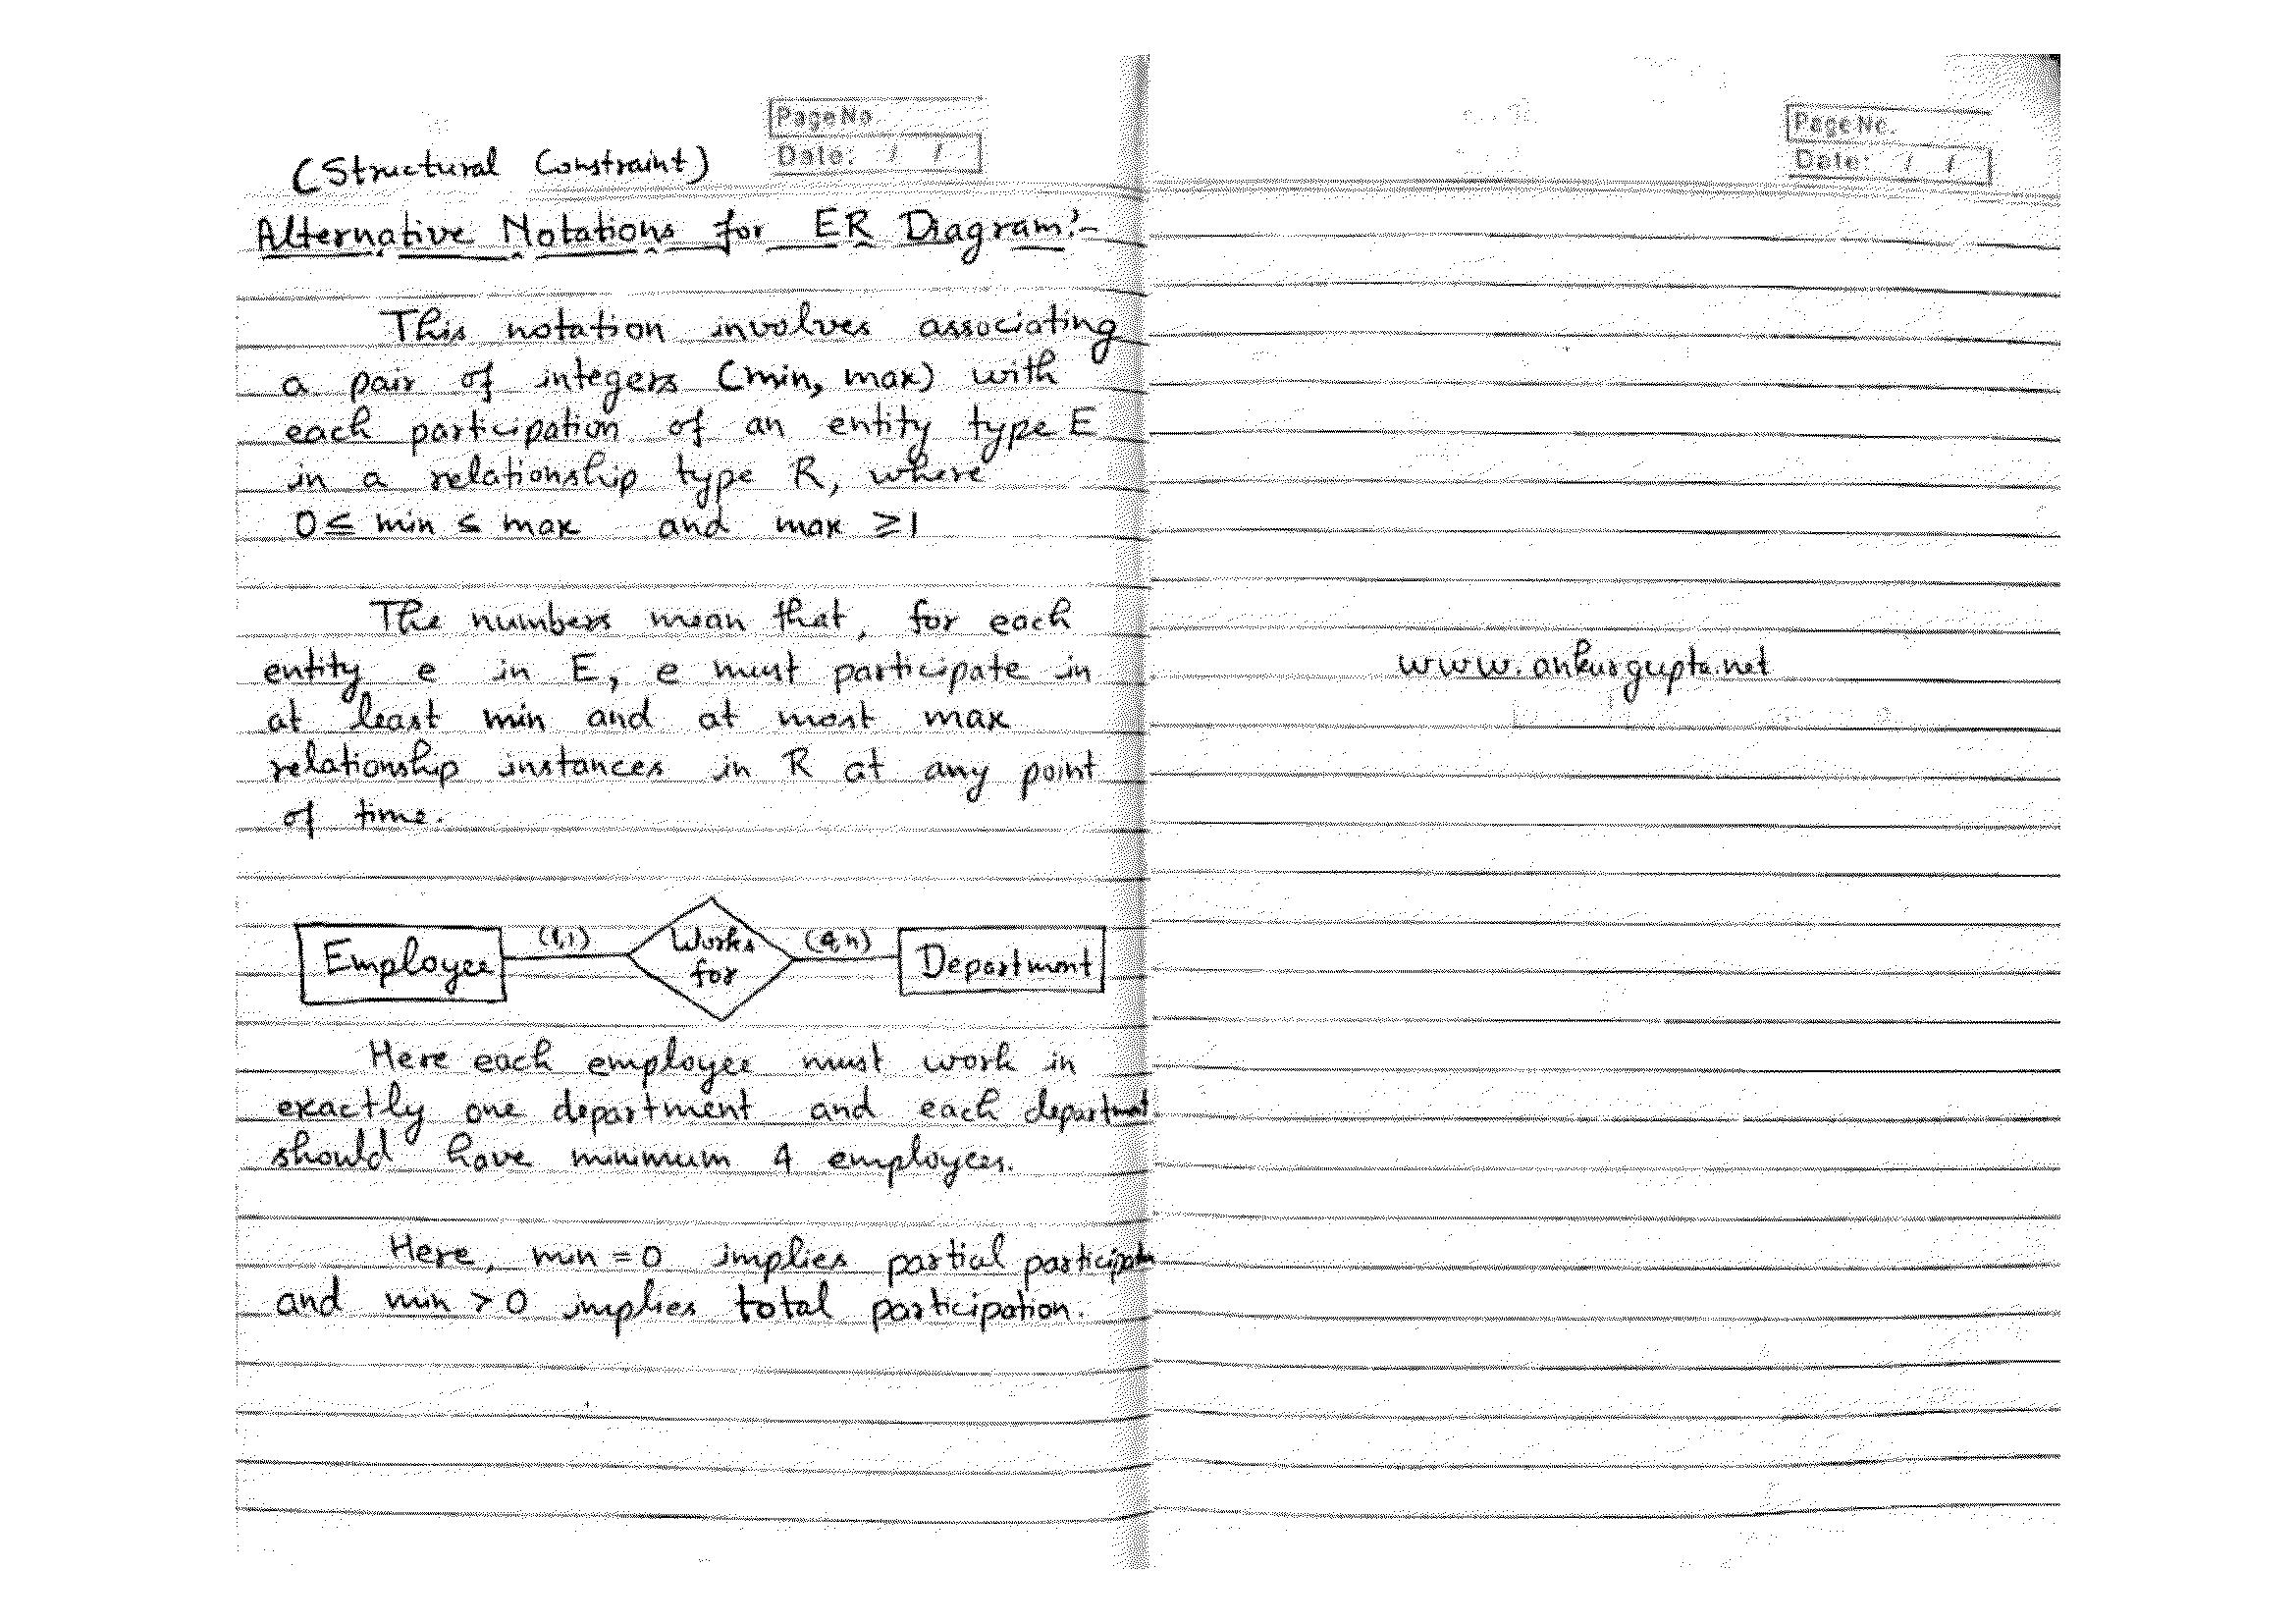 Page No.
Date: / /
(Structural Constraint)
Alternative Notations for ER Diagram:-
This notation involves associating
a pair of integers (min, max) with
each participation of an entity type E
in a relationship type R, where
0 ≤ min ≤ max and max ≥ 1
The numbers mean that, for each
entity e in E, e must participate in
at least min and at most max
relationship instances in R at any point
of time.
Employee (1,1) Works for (4,n) Department
Here each employee must work in
exactly one department and each department
should have minimum 4 employees.
Here, min = 0 implies partial
and min > 0 implies total participation.
Page No.
Date: / /
www.ankurgupta.net